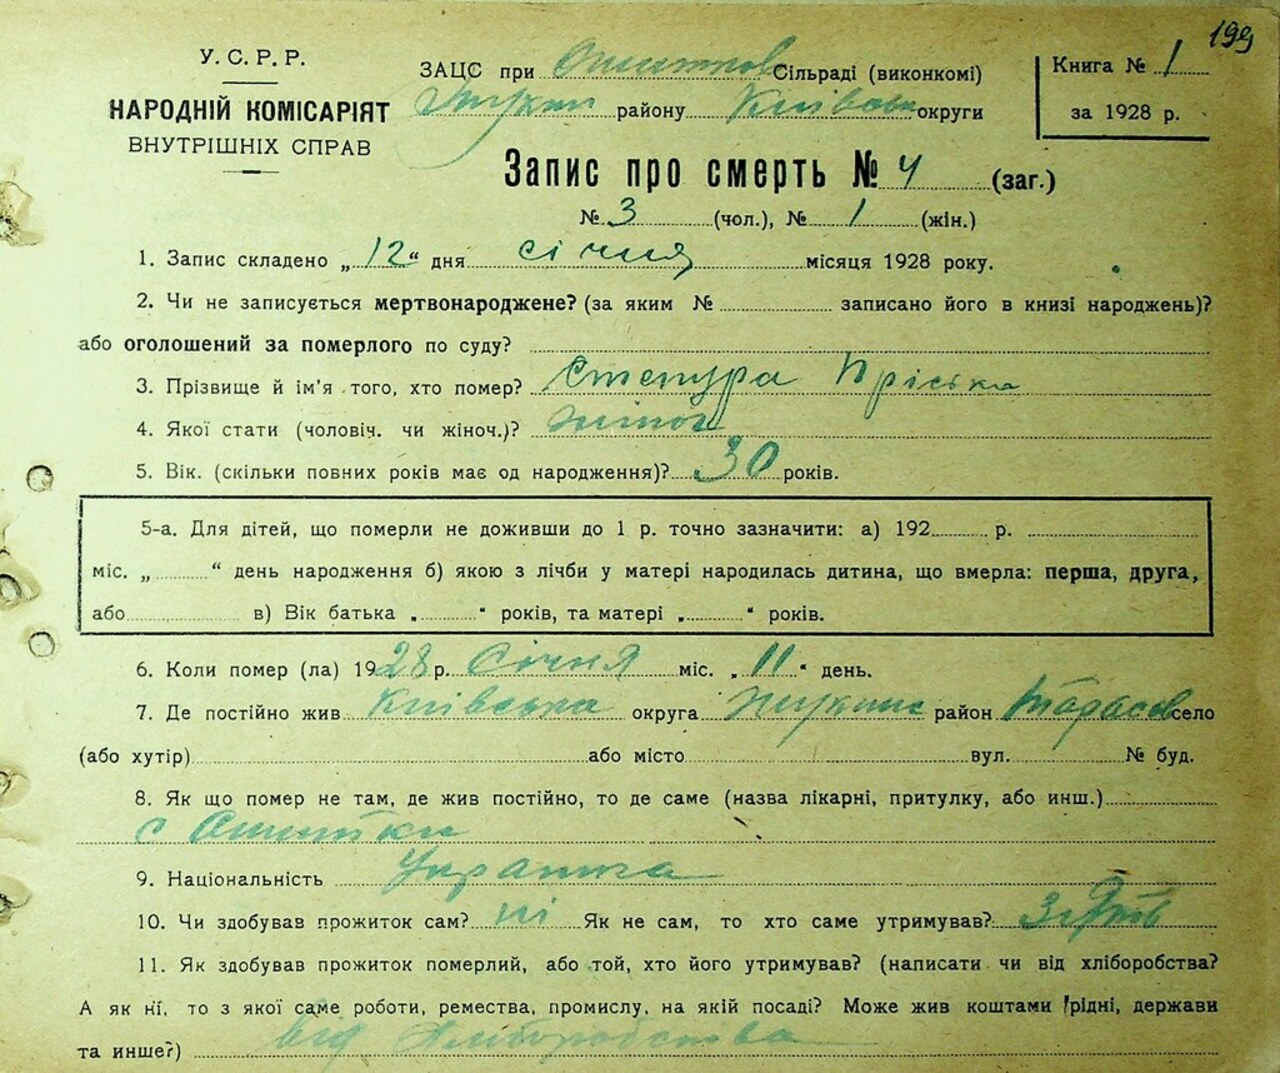 199
У. С. Р. Р.
НАРОДНІЙ КОМІСАРІЯТ
ВНУТРІШНІХ СПРАВ
ЗАЦС при Сільраді (виконкомі)
району Київська округи
Книга № 1
за 1928 р.
Запис про смерть № 4 (заг.)
№ 3 (чол.), № 1 (жін.)
1. Запис складено „12“ дня січня місяця 1928 року.
2. Чи не записується мертвонароджене? (за яким № записано його в книзі народжень)?
або оголошений за померлого по суду?
3. Прізвище й ім'я того, хто помер? Стетура Пріська
4. Якої стати (чоловіч. чи жіноч.)? жіноч
5. Вік. (скільки повних років має од народження)? 30 років.
5-а. Для дітей, що померли не доживши до 1 р. точно зазначити: а) 192 р.
міс. „ “ день народження б) якою з лічби у матері народилась дитина, що вмерла: перша, друга,
або в) Вік батька „ “ років, та матері „ “ років.
6. Коли помер (ла) 1928 р. Січня міс. „11“ день.
7. Де постійно жив Київська округа район село
(або хутір) або місто вул. № буд.
8. Як що помер не там, де жив постійно, то де саме (назва лікарні, притулку, або инш.)
с
9. Національність Українка
10. Чи здобував прожиток сам? ні Як не сам, то хто саме утримував? зять
11. Як здобував прожиток померлий, або той, хто його утримував? (написати чи від хліборобства?
А як ні, то з якої саме роботи, ремества, промислу, на якій посаді? Може жив коштами рідні, держави
та инше?) від Хліборобства